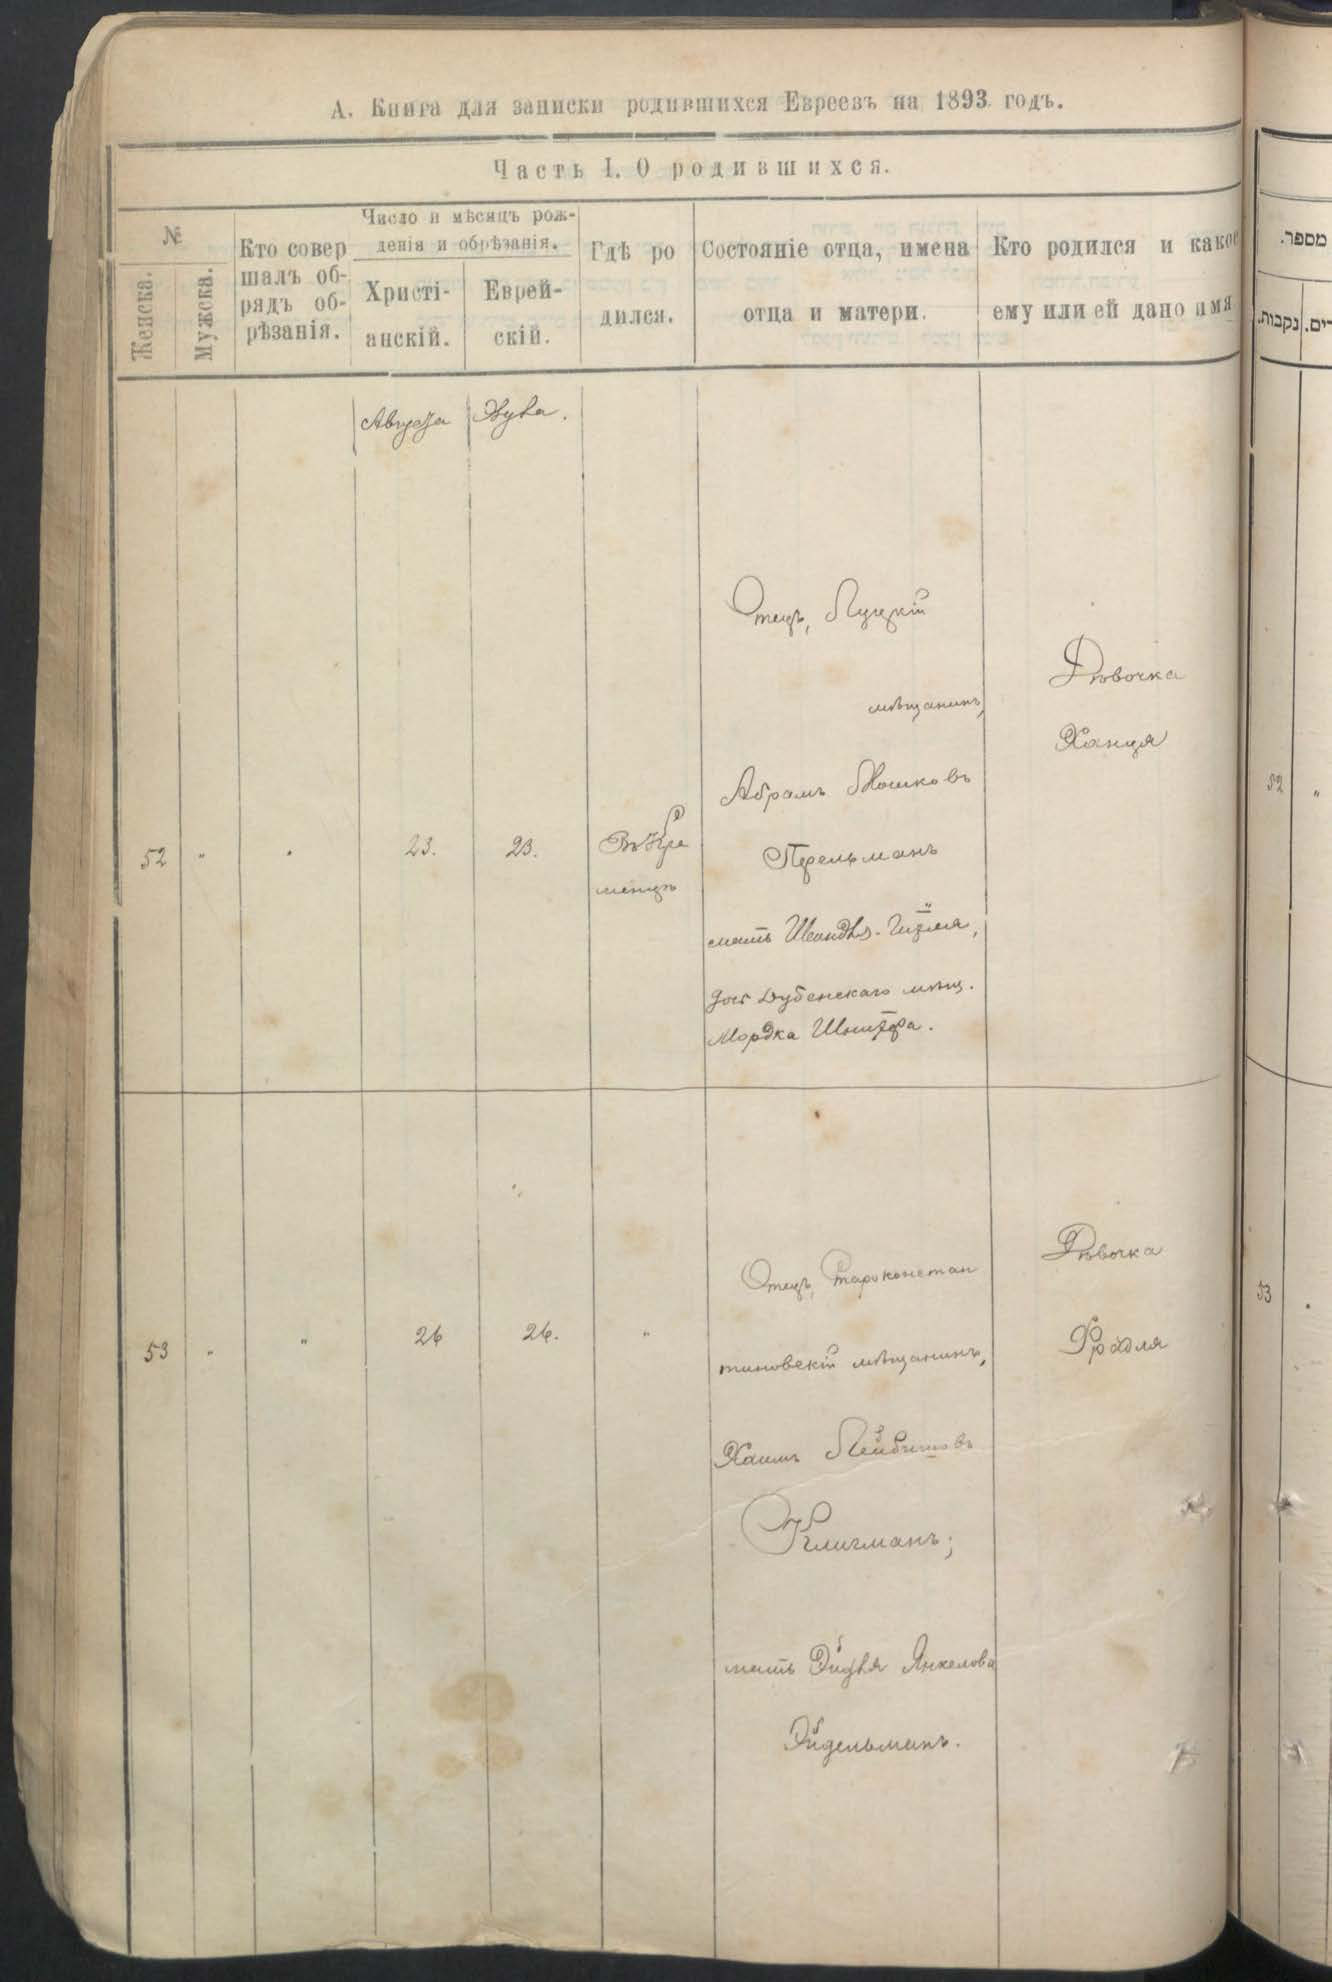 А. Книга для записки родившихся Евреевъ на 1893 годъ.
Часть I. О родившихся.
№
Женска.
Мужска.
Кто совер
шалъ об-
рядъ об-
рѣзанія.
Число и мѣсяцъ рож-
денія и обрѣзанія.
Христі-
анскій.
Еврей-
скій.
Гдѣ ро
дился.
Состояніе отца, имена
отца и матери.
Кто родился и какое
ему или ей дано имя
Августа
52 " "
23.
23.
Въ Кре
менцѣ
Отецъ, Луцкій
мѣщанинъ,
Абрамъ Мошковъ
Перельманъ
мать
доч Дубенскаго мѣщ.
Мордка
Дѣвочка
Ханця
53 " "
26
26.
"
Отецъ, Староконстан
тиновскій мѣщанинъ,
Хаимъ Лейбишовъ
Клигманъ;
мать Янкелова
Эйдельманъ.
Дѣвочка
Фрадля
מספר.
נקבות.
52 "
53